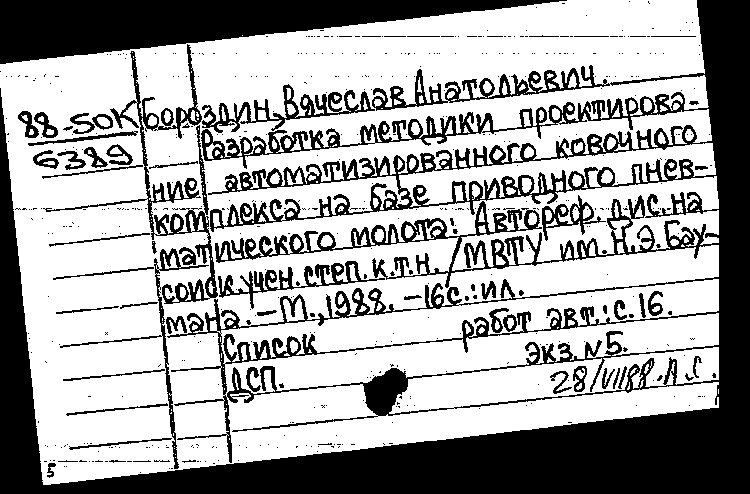 88-50К Бороздин, Вячеслав Анатольевич.
6389 Разработка методики проектирова-
ние автоматизированного ковочного
комплекса на базе приводного пнев-
матического молота: Автореф. дис. на
соиск. учен. степ. к.т.н. /МВТУ им. Н.Э. Бау-
мана. – М., 1988. – 16 с.: ил.
Список работ авт.: с. 16.
ДСП. Экз. N5.
28/VII88. А.С.
5